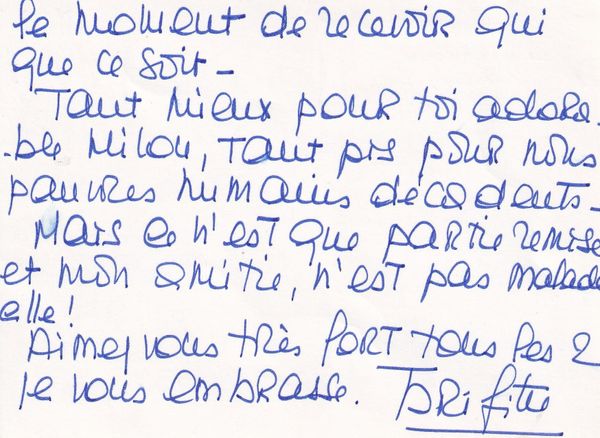 le moment de recevoir qui
que ce soit _
Tant mieux pour toi adora.
.ble Milou, tant pis pour nous
pauvres humains décadents _
Mais ce n'est que partie remise
et mon amitié, n'est pas malade
elle !
Aimez vous très FORT tous les 2
je vous embrasse. Brigitte